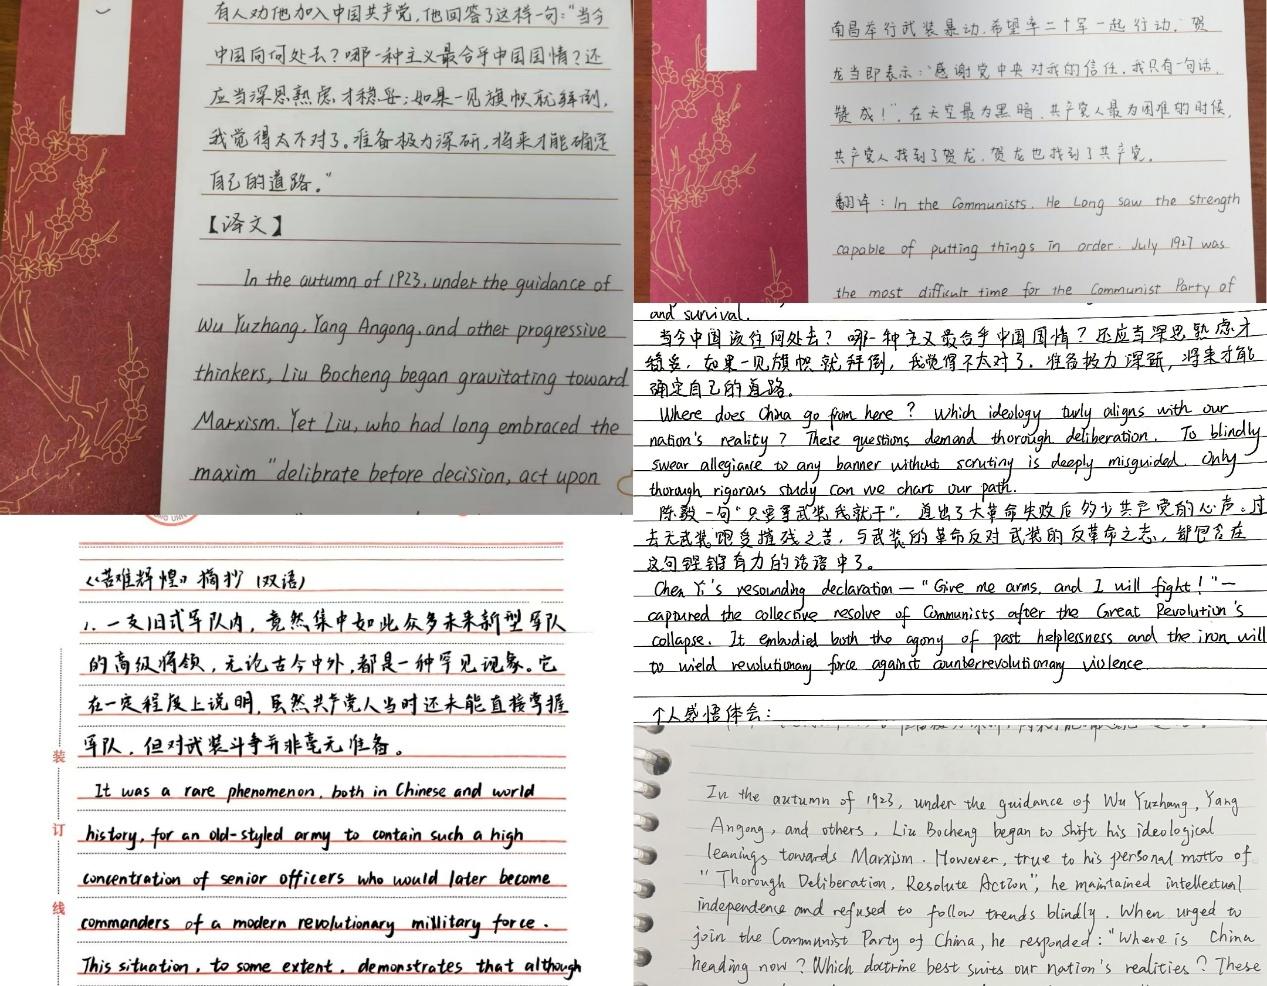 有人劝他加入中国共产党，他回答了这样一句："当今
中国向何处去？哪一种主义最合乎中国国情？还
应当深思熟虑才稳妥；如果一见旗帜就拜倒，
我觉得太不对了。准备极力深研，将来才能确定
自己的道路。"
【译文】
In the autumn of 1923, under the guidance of
Wu Yuzhang, Yang Angong, and other progressive
thinkers, Liu Bocheng began gravitating toward
Marxism. Yet Liu, who had long embraced the
maxim "delibrate before decision, act upon
南昌举行武装暴动，希望率二十军一起行动。贺
龙当即表示："感谢党中央对我的信任，我只有一句话，
赞成！"在天空最为黑暗、共产党人最为困难的时候，
共产党人找到了贺龙，贺龙也找到了共产党。
翻译：In the Communists, He Long saw the strength
capable of putting things in order. July 1927 was
the most difficult time for the Communist Party of
and survival.
当今中国该往何处去？哪一种主义最合乎中国国情？还应当深思熟虑才
稳妥，如果一见旗帜就拜倒，我觉得不太对了。准备极力深研，将来才能
确定自己的道路。
Where does China go from here? Which ideology turly aligns with our
nation's reality? These questions demand thorough deliberation. To blindly
swear allegiance to any banner without scrutiny is deeply misguided. Only
thorough rigorous study can we chart our path.
陈毅一句"只要拿武装我就干"，道出了大革命失败后多少共产党的心声。过
去无武装饱受摧残之苦，与武装的革命反对武装的反革命之志，都包含在
这句铿锵有力的话语中了。
Chen Yi's resounding declaration — "Give me arms, and I will fight!" —
captured the collective resolve of Communists after the Great Revolution's
collapse. It embodied both the agony of past helplessness and the iron will
to wield revolutionary force against counterrevolutionary violence.
个人感悟体会：
《苦难辉煌》摘抄（双语）
1. 一支旧式军队内，竟然集中如此众多未来新型军队
的高级将领，无论古今中外，都是一种罕见现象。它
在一定程度上说明，虽然共产党人当时还未能直接掌握
军队，但对武装斗争并非毫无准备。
It was a rare phenomenon, both in Chinese and world
history, for an old-styled army to contain such a high
concentration of senior officers who would later become
commanders of a modern revolutionary millitary force.
This situation, to some extent, demonstrates that although
装
订
线
In the autumn of 1923, under the guidance of Wu Yuzhang, Yang
Angong, and others, Liu Bocheng began to shift his ideological
leanings towards Marxism. However, true to his personal motto of
"Thorough Deliberation, Resolute Action", he maintained intellectual
independence and refused to follow trends blindly. When urged to
join the Communist Party of China, he responded: "Where is China
heading now? Which doctrine best suits our nation's realities? These